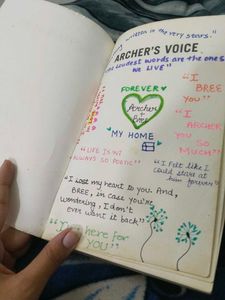 written in the very stars."
ARCHER'S VOICE
loudest words are the ones
WE LIVE"
FOREVER
"I
BREE
YOU"
Archer
+
Bree
MY HOME
"I
ARCHER
YOU
SO
MUCH"
"LIFE ISN'T
ALWAYS SO POETIC"
"I felt like I
could stare at
him forever"
"I lost my heart to you. And,
BREE, in case you're
wondering, I don't
ever want it back"
here for
YOU"